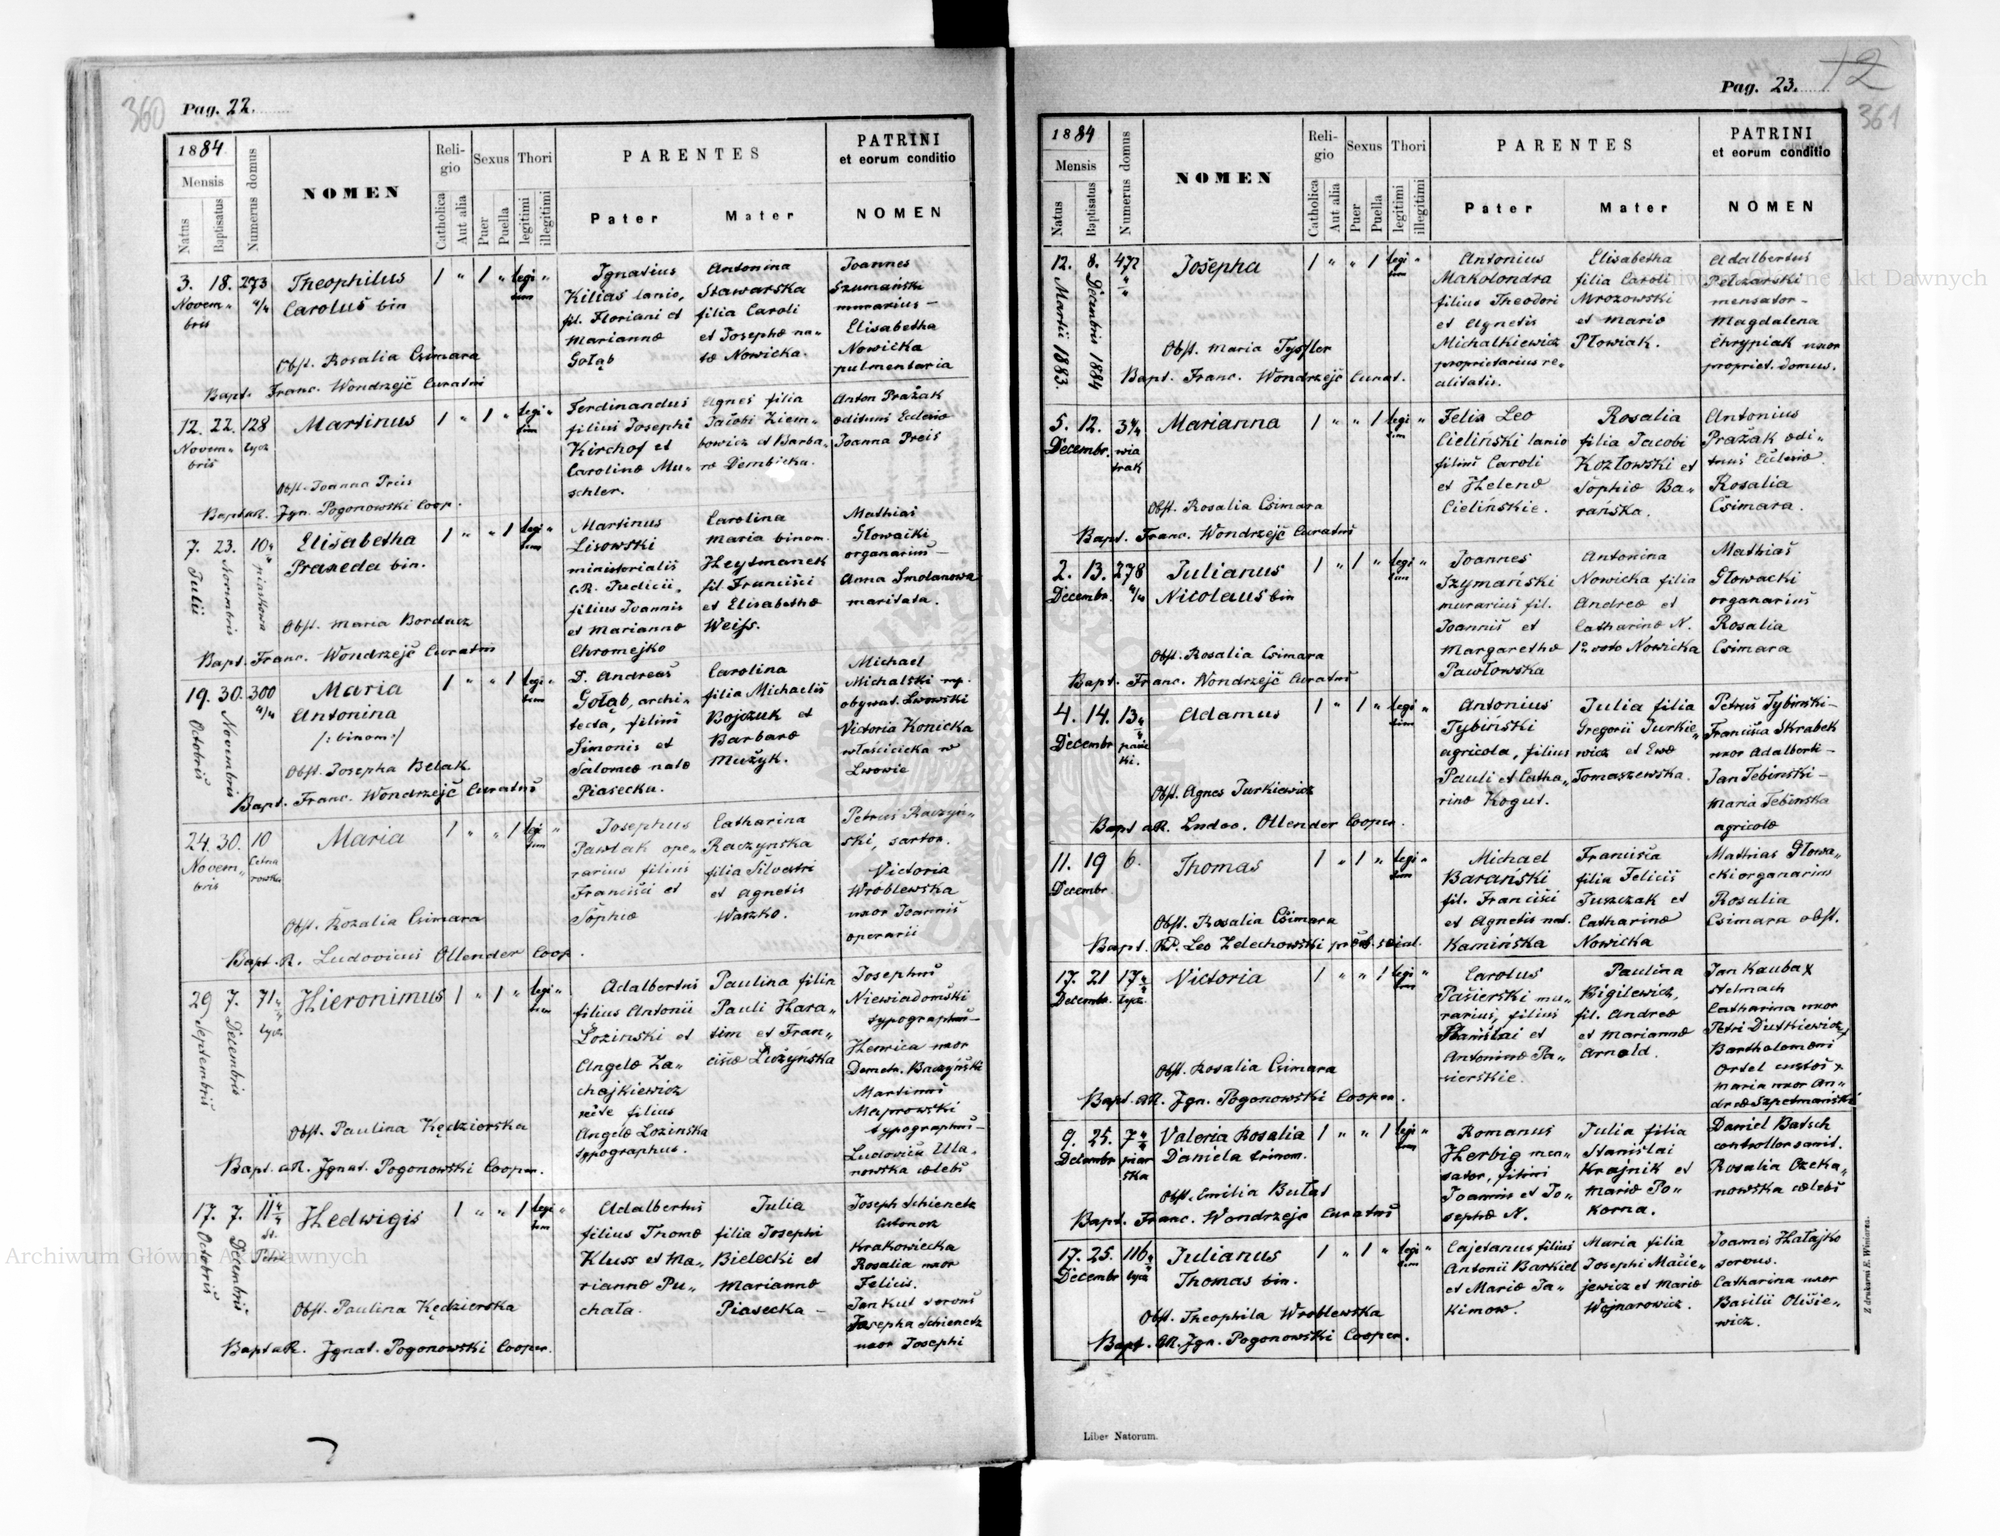 360
Pag. 22.
1884.
Mensis
Natus
Baptisatus
Numerus domus
NOMEN
Reli-
gio
Catholica
Aut alia
Sexus
Puer
Puella
Thori
legitimi
illegitimi
PARENTES
Pater
Mater
PATRINI
et eorum conditio
NOMEN
3. 18. 273 4/4
Novem-
bris
Theophilus
Carolus bin
1 " 1 " legi "
tim
Obst. Rosalia Csimara
Bapt. Franc. Wondrzejč Curatus
Ignatius
Kilias lanio,
fil. Floriani et
Mariannæ
Gołąb
Antonina
Stawarska
filia Caroli
et Josephæ na-
tæ Nowicka.
Joannes
Szumański
murarius -
Elisabetha
Nowicka
pulmentaria
12. 22. 128
Novem-
bris
Łycz
Martinus
1 " 1 " legi "
tim
Obst. Joanna Preis
Bapt. aR. Ign. Pogonowski Coop.
Ferdinandus
filius Josephi
Kirchof et
Carolinæ Mu-
schler.
Agnes filia
Jacobi Ziem-
bowicz et Barba-
ræ Dembicka.
Anton Pražak
ædituus Eclesiæ
Joanna Preis
7. 23. 10
Julii
Novembris
piaskowa
Elisabetha
Praxeda bin.
1 " " 1 legi "
tim
Obst. Maria Bordacz
Bapt. Franc. Wondrzejč Curatus
Martinus
Lisowski
ministerialis
c.R. Judicii,
filius Joannis
et Mariannæ
Chromejko
Carolina
Maria binom.
Heysmanek
fil. Francisci
et Elisabethæ
Weiss.
Mathias
Głowacki
organarius -
Anna Smolanowa
maritata.
19. 30. 300 4/4
Octobris
Novembris
Maria
Antonina
/: binom :/
1 " " 1 legi "
tim
Obst. Josepha Belak.
Bapt. Franc. Wondrzejč Curatus
D. Andreas
Gołąb, archi-
tecta, filius
Simonis et
Salomeæ natæ
Piasecka.
Carolina
filia Michaelis
Bojczuk et
Barbaræ
Mužyk.
Michael
Michalski
obywat. Lwowski
Victoria Konicka
właścicicka w
Lwowie
24. 30. 10
Novem-
bris
Cetna
rowka
Maria
1 " " 1 legi "
tim
Obst. Rozalia Csimara
Bapt. R. Ludovicus Ollender Coop.
Josephus
Pawlak ope-
rarius filius
Francisci et
Sophiæ
Catharina
Raczynska
filia Silvestri
et Agnetis
Waszko.
Petrus Raczyń-
ski, sartor.
Victoria
Wroblewska
uxor Joannis
operarii
29 7. 71
Septembris
Decembris
Łycz
Hieronimus
1 " 1 " legi "
tim
Obst. Paulina Kędzierska
Bapt. aR. Ignat. Pogonowski Cooper.
Adalbertus
filius Antonii
Łozinski et
Angelæ Za-
chajkiewicz
recte filius
Angelæ Lozinska
typographus.
Paulina filia
Pauli Hara-
tim et Fran-
ciscæ Łużyńska
Josephus
Niewiadomski
typographus -
Henrica uxor
Demetr. Baczyński
Martinus
Majrowski
typographus -
Ludovica Ula-
nowska cælebs
17. 7. 11 4/4
Octobris
Decembris
St.
Petri
Hedwigis
1 " " 1 legi "
tim
Obst. Paulina Kędzierska
Bapt. aR. Ignat. Pogonowski Cooper.
Adalbertus
filius Thomæ
Kluss et Ma-
riannæ Pu-
chała.
Julia
filia Josephi
Bielecki et
Mariannæ
Piasecka -
Joseph Schienetz
Krakowiecka
Rosalia uxor
Felicis.
Jan Kut servus
Josepha Schienetz
uxor Josephi
12
361
Pag. 23.
1884
Mensis
Natus
Baptisatus
Numerus domus
NOMEN
Reli-
gio
Catholica
Aut alia
Sexus
Puer
Puella
Thori
legitimi
illegitimi
PARENTES
Pater
Mater
PATRINI
et eorum conditio
NOMEN
12. 8. 472
Martii 1883.
Decembris 1884
Josepha
1 " " 1 legi "
tim
Obst. Maria Tyssler
Bapt. Franc. Wondrzejč Curat.
Antonius
Makolondra
filius Theodori
et Agnetis
Michalkiewicz
proprietarius re-
alitatis.
Elisabetha
filia Caroli
Mrozowski
et Mariæ
Płowiak.
Adalbertus
Pelczarski
mensator -
Magdalena
Chrypiak uxor
propriet. domus.
5. 12. 37
Decembr.
wia
trak
Marianna
1 " " 1 legi "
tim
Obst. Rosalia Csimara
Bapt. Franc. Wondrzejč Curatus
Felix Leo
Cieliński lanio
filius Caroli
et Helenæ
Cielińskie.
Rosalia
filia Jacobi
Kozłowski et
Sophiæ Ba-
rańska.
Antonius
Pražak ædi-
tuus Eclesiæ
Rosalia
Csimara.
2. 13. 278 4/4
Decembr.
Julianus
Nicolaus bin
1 " 1 " legi "
tim
Obst. Rosalia Csimara
Bapt. Franc. Wondrzejč Curatus
Joannes
Szymański
murarius fil.
Joannis et
Margarethæ
Pawłowska
Antonina
Nowicka filia
Andreæ et
Catharinæ N.
1º voto Nowicka
Mathias
Głowacki
organarius
Rosalia
Csimara
4. 14. 13
Decembr
Adamus
1 " 1 " legi "
tim
Obst. Agnes Jurkiewicz
Bapt aR. Ludov. Ollender Cooper.
Antonius
Tybiński
agricola, filius
Pauli et Catha-
rinæ Kogut.
Julia filia
Gregorii Jurkie-
wicz et Evæ
Tomaszewska.
Petrus Tybinski -
Francisca Skrabek
uxor Adalberti -
Jan Tebinski -
Maria Tebinska
agricolæ
11. 19 6.
Decembr
Thomas
1 " 1 " legi "
tim
Obst. Rosalia Csimara
Bapt. RP. Leo Zelechowski
Michael
Barański
fil. Francisci
et Agnetis nat.
Kamińska
Francisca
filia Felicis
Juszczak et
Catharinæ
Nowicka
Mathias Głowa-
cki organarius
Rosalia
Csimara obst.
17. 21 17
Decembr.
Łycz
Victoria
1 " " 1 legi "
tim
Obst. Rosalia Csimara
Bapt. aR. Ign. Pogonowski Cooper.
Carolus
Pasierski mu-
rarius, filius
Stanislai et
Antoninæ Pa-
sierskie.
Paulina
Bigilewicz,
fil. Andreæ
et Mariannæ
Arnold.
Jan Kauba x
stelmach
Catharina uxor
Petri Dutkiewicz x
Bartholomeus
Ortel custos x
Maria uxor An-
dreæ Szpetmański
9. 25. 7
Decembr
piar
ska
Valeria Rosalia
Daniela trinom.
1 " " 1 legi "
tim
Obst. Emilia Bułat
Bapt. Franc. Wondrzejc Curatus
Romanus
Herbig men-
sator, filius
Joannis et Jo-
sephæ N.
Julia filia
Stanislai
Krajnik et
Mariæ Po-
korna.
Daniel Batsch
controllor sanit.
Rosalia Czeka-
nowska cælebs
17. 25. 116
Decembr
Łycz
Julianus
Thomas bin.
1 " 1 " legi "
tim
Obst. Theophila Wroblewska
Bapt. aR. Ign. Pogonowski Cooper.
Cajetanus filius
Antonii Barkiel
et Mariæ Ja-
kimow.
Maria filia
Josephi Macie-
jewicz et Mariæ
Wojnarowicz.
Joannes Hałajko
servus.
Catharina uxor
Basilii Olisie-
wicz.
Liber Natorum.
Z drukarni E. Winiarza.
Archiwum Główne Akt Dawnych
Archiwum Główne Akt Dawnych